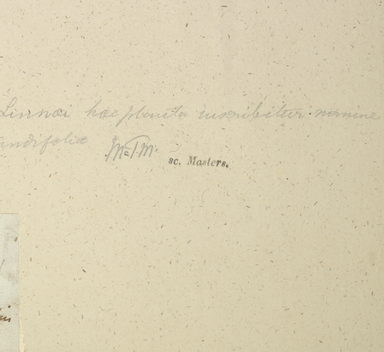 Linnæi hac planta inscribitur nomine
andifolia M.T.M.
sc. Masters.